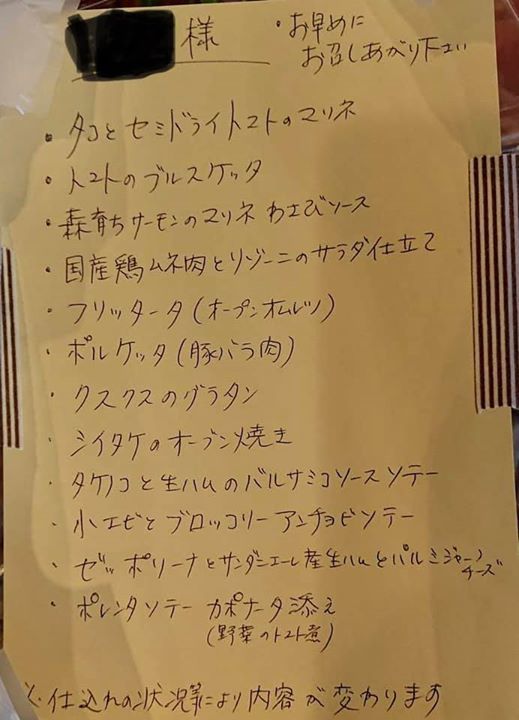 様
・お早めに
お召しあがり下さい
・タコとセミドライトマトのマリネ
・トマトのブルスケッタ
・森育ちサーモンのマリネ わさびソース
・国産鶏ムネ肉とリゾーニのサラダ仕立て
・フリッタータ(オープンオムレツ)
・ポルケッタ(豚バラ肉)
・クスクスのグラタン
・シイタケのオーブン焼き
・タケノコと生ハムのバルサミコソースソテー
・小エビとブロッコリーアンチョビソテー
・ゼッポリーナとサンダニエーレ産生ハムとパルミジャーノ
チーズ
・ポレンタソテー カポナータ添え
(野菜のトマト煮)
※仕込れの状況等により内容が変わります